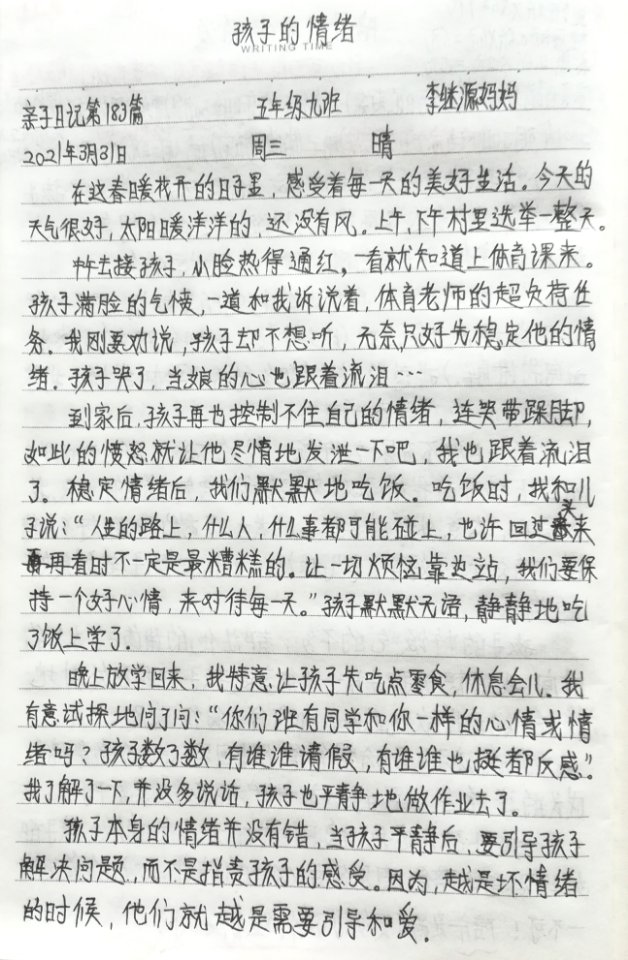 孩子的情绪
WRITING TIME
亲子日记第183篇 五年级九班 李继源妈妈
2021年3月31日 周三 晴
在这春暖花开的日子里，感受着每一天的美好生活。今天的
天气很好，太阳暖洋洋的，还没有风。上午、下午村里选举一整天。
中午去接孩子，小脸热得通红，一看就知道上体育课来。
孩子满脸的气愤，一道和我诉说着，体育老师的超负荷任
务。我刚要劝说，孩子却不想听，无奈只好先稳定他的情
绪。孩子哭了，当娘的心也跟着流泪…
到家后，孩子再也控制不住自己的情绪，连哭带跺脚，
如此的愤怒就让他尽情地发泄一下吧，我也跟着流泪
了。稳定情绪后，我们默默地吃饭。吃饭时，我和儿
子说：“人生的路上，什么人，什么事都可能碰上，也许回过头来
再看时不一定是最糟糕的。让一切烦恼靠边站，我们要保
持一个好心情，来对待每一天。”孩子默默无语，静静地吃
了饭上学了.
晚上放学回来，我特意让孩子先吃点零食，休息会儿。我
有意试探地问了问：“你们班有同学和你一样的心情或情
绪吗？孩子数了数，有谁谁请假，有谁谁也挺都反感”。
我了解了一下，并没多说话，孩子也平静地做作业去了.
孩子本身的情绪并没有错，当孩子平静后，要引导孩子
解决问题，而不是指责孩子的感受。因为，越是坏情绪
的时候，他们就越是需要引导和爱.